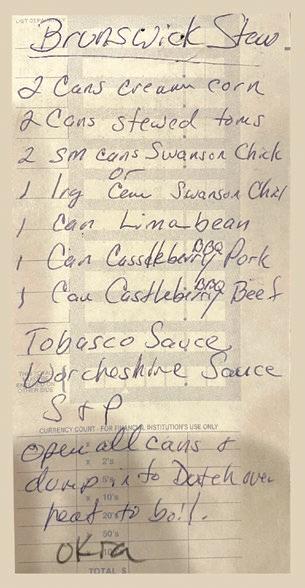 Brunswick Stew
2 Cans cream corn
2 Cans stewed toms
2 sm cans Swanson Chick
or
1 lrg Can Swanson Chic
1 can Lima bean
1 Can Casstleberry BBQ Pork
1 Can Castleberry BBQ Beef
Tobasco Sauce
Worcheshire Sauce
S & P
OTHER SIDE
CURRENCY COUNT - FOR FINANCIAL INSTITUTION'S USE ONLY
Open all cans &
x 2's
dump in to Dutch oven
x 5's
x 10's
heat to boil.
20's
50's
OKra
TOTAL $